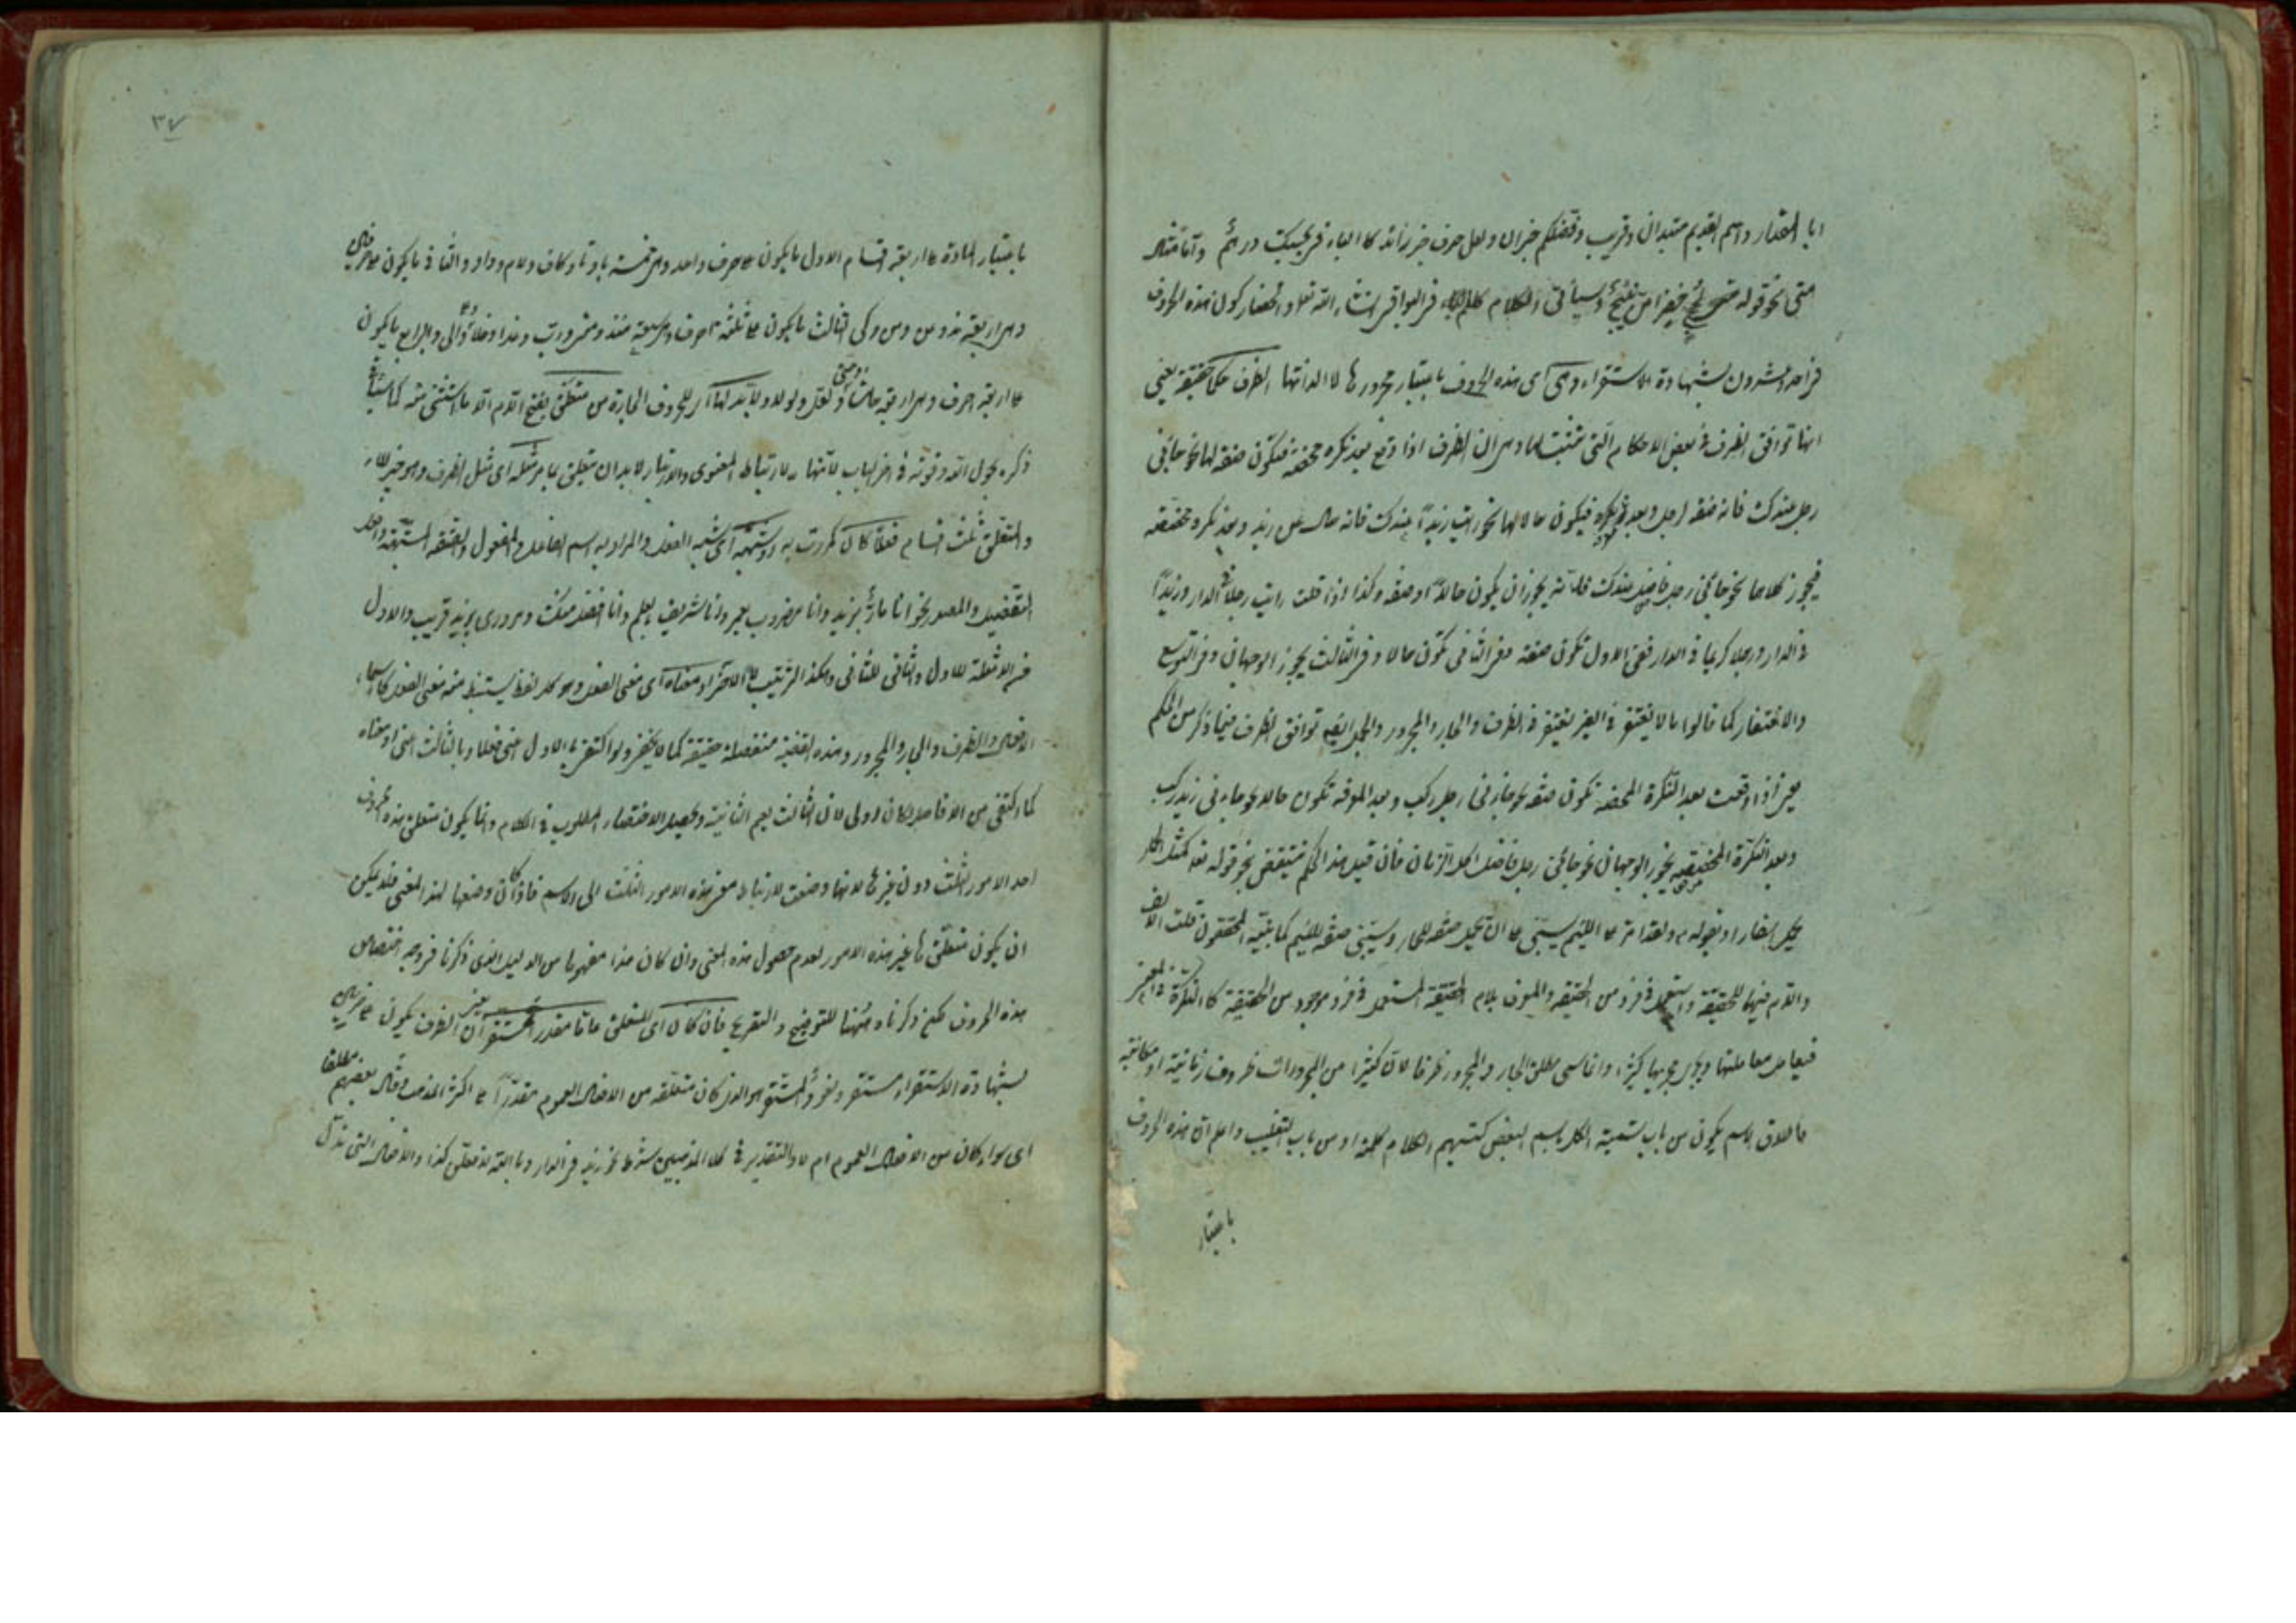 متى نحو قوله متى لجج خضر لهن نئيج وسيأتي الكلام في البواقي انشاء الله تعالى وانحصار كون هذه الحروف
في احد وعشرون بشهادة الاستقراء وهي اي هذه الحروف باعتبار مجرورها لا الذاتها الظرف حكما حقيقة يعني
انها توافق الظرف في بعض الاحكام التي تثبت لها وهي ان الظرف اذا وقع بعد نكرة محضة فتكون صفة لها نحو جائني
رجل عندك فانه صفة لرجل وبعد معرفة فيكون حالا لها نحو رايت زيدا عندك فانه حال من زيد وبعد نكرة مخصصة
فيجوز كلاهما نحو جائني رجل فاضل عندك فانه يجوز ان يكون حالا او صفة وكذا اذا قلت رايت رجلا في الدار وزيدا
في الدار ورجلا كريما في الدار ففي الاول تكون صفة وفي الثاني تكون حالا وفي الثالث يجوز الوجهان وفي التوسع
والاغتفار كما قالوا ما لا يغتفر في الغير يغتفر في الظرف والجار والمجرور والجمل ايضا توافق الظرف فيما ذكر من الحكم
يعني اذا وقعت بعد النكرة المحضة تكون صفة نحو جائني رجل ركب وبعد المعرفة تكون حالا نحو جائني زيد ركب
وبعد النكرة المخصصة يجوز الوجهان نحو جائني رجل فاضل اكل الرمان فان قيل هذا الحكم منتقض بنحو قوله تعالى كمثل الحمار
يحمل اسفارا وبقوله ولقد امر على اللئيم يسبني على ان يحمل صفة للحمار ويسبني صفة للئيم كما بينه المحققون قلت الالف
واللام فيهما للحقيقة واستعمل في فرد من الحقيقة والمعرف بلام الحقيقة المستعمل في فرد موجود من الحقيقة كالنكرة في المعنى
فيعامل معاملتها ويجري مجريها كثيرا وانما سمى مطلق الجار والمجرور ظرفا لان كثيرا من المجرورات ظروف زمانية او مكانية
فاطلاق الاسم يكون من باب تسمية الكل باسم البعض كتسميتهم الكلام كلمة او من باب التغليب واعلم ان هذه الحروف
باعتبار
٣٧
باعتبار المادة على اربعة اقسام الاول ما يكون على حرف واحد وهي خمسة با وتا وكاف ولام وواو والثاني ما يكون على حرفين
وهي اربعة مذ ومن وعن وكي الثالث ما يكون على ثلثة احرف وهي سبعة منذ ورب وعدا وخلا والى والرابع ما يكون
على اربعة احرف وهي اربعة حاشا ولعل ولولا وحتى ولا بد لها اي للحروف الجارة من متعلق بفتح اللام الا ما استثنى منه كما سيأتي
ذكره بحول الله وقوته في آخر الباب لانها للارتباط المعنوي والارتباط لا بد ان يتعلق بامر مثله اي مثل الظرف وهو خبر لا
والمتعلق ثلث اقسام فعلا كان كمررت به او شبهه اي شبه الفعل والمراد به اسم الفاعل والمفعول والصفة المشبهة وافعل
التفضيل والمصدر نحو انا مار بزيد وانا مضروب بعمرو وانا شريف بعلم وانا افضل منك ومروري بزيد قريب والاول
من الامثلة للاول والثاني للثاني وهكذا الترتيب الى الآخر او معناه اي معنى الفعل وهو كل لفظ يستنبط منه معنى الفعل كاسماء
الافعال والظرف والجار والمجرور وهذه القضية منفصلة حقيقة كما لا يخفى ولو اكتفى بالاول اعني فعلا وبالثالث اعني او معناه
كما اكتفى من الافاضل لكان اولى لان الثالث يعم الثانية وتحصيل الاختصار المطلوب في الكلام وانما يكون متعلق هذه الحروف
احد الامور الثلث دون غيرها لانها وضعت لارتباط معنى هذه الامور الثلث الى الاسم فاذا كان وضعها لهذا المعنى فلا يمكن
ان يكون متعلقها غير هذه الامور لعدم حصول هذه المعنى وان كان هذا مفهوما من الدليل الذي ذكرنا في وجه اختصاص
هذه الحروف لكن ذكرناه ههنا للتوضيح والتفريع فان كان اي المتعلق عاما مقدرا فمستقر يعني ان الظرف يكون على ضربين
بشهادة الاستقراء مستقر ولغو والمستقر هو الذي كان متعلقه من الافعال العموم مقدرا على اكثر المذهب وقال بعضهم مطلقا
اي سواء كان من الافعال العموم ام لا والتقدير في كلا المذهبين شرط نحو زيد في الدار وبالله لافعلن كذا والافعال التي تدل